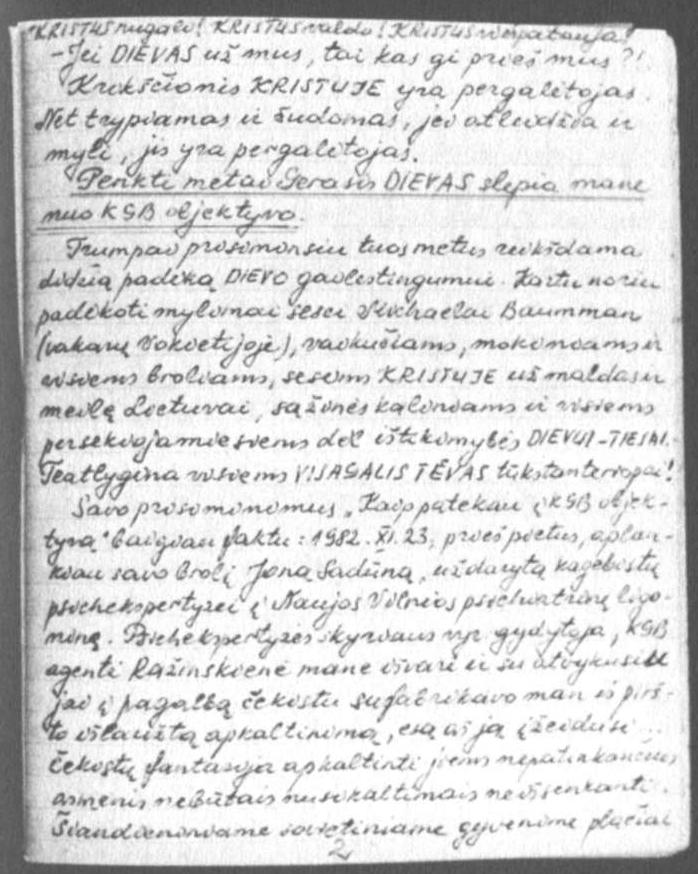 KRISTUS nugali! KRISTUS valdo! KRISTUS viešpatauja!
-Jei DIEVAS už mus, tai kas gi prieš mus?!
Krikščionis KRISTUJE yra pergalėtojas.
Net trypiamas ir žudomas, jei atleidžia ir
myli, jis yra pergalėtojas.
Penkti metai Gerasis DIEVAS slepia mane
nuo KGB objektyvo.
Trumpai prisiminsiu tuos metus reikšdama
didžią padėką DIEVO gailestingumui. Kartu noriu
padėkoti mylimai sesei Michaelai Baumman
(vakarų Vokietijoje), vaikučiams, mokiniams ir
visiems broliams, sesėms KRISTUJE už maldas ir
meilę Lietuvai, sąžinės kaliniams ir visiems
persekiojamiesiems dėl ištikimybės DIEVUI-TIESAI.
Teatlygina visiems VISAGALIS TĖVAS tūkstanteriopai!
Savo prisiminimus „Kaip patekau į KGB objek-
tyvą" baigiau faktu: 1982.XI.23, prieš pietus, aplan-
kiau savo brolį Joną Sadūną, uždarytą kagebistų
psichekspertyzei į Naujos Vilnios psichiatrinę ligo-
ninę. Psichekspertyzės skyriaus vyr. gydytoja, KGB
agentė Ražinskienė mane išvarė ir su atvykusiu
jai į pagalbą čekistu sufabrikavo man iš pirš-
to išlaužtą apkaltinimą, esą aš ją įžeidusi...
čekistų fantazija apkaltinti jiems nepatinkančius
asmenis nebūtais nusikaltimais neišsenkanti.
Šiandieniniame sovietiniame gyvenime plačiai
2